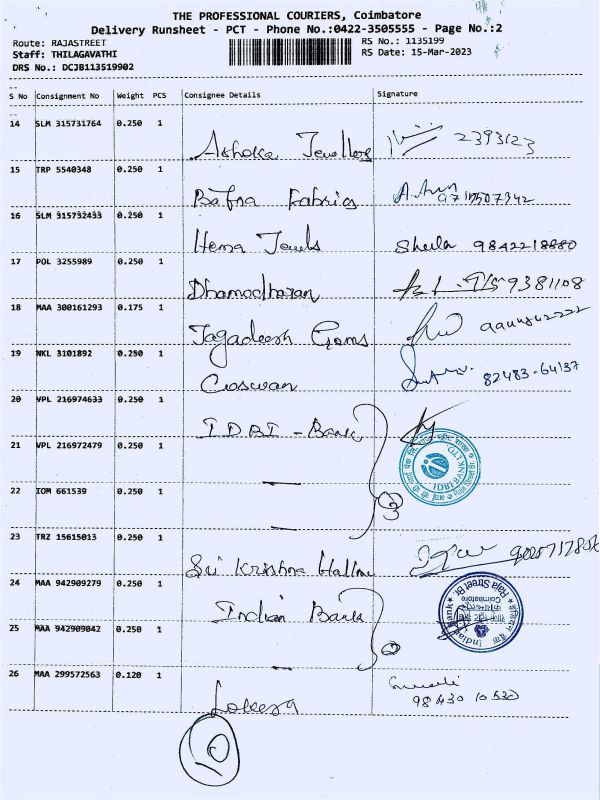 THE PROFESSIONAL COURIERS, Coimbatore
Delivery Runsheet - PCT - Phone No.:0422-3505555 - Page No.:2
Route: RAJASTREET RS No.: 1135199
Staff: THILAGAVATHI RS Date: 15-Mar-2023
DRS No.: DCJB113519902
S No Consignment No Weight PCS Consignee Details Signature
14 SLM 315731764 0.250 1
Ashoka Jewellers 2393123
15 TRP 5540348 0.250 1
Bafna Fabrics
16 SLM 315732433 0.250 1
Hema Jewels Sheela 9842218880
17 POL 3255989 0.250 1
Dhamodharan 9381108
18 MAA 300161293 0.175 1
Jagadeesh Gems
19 NKL 3101892 0.250 1
82483-64137
20 VPL 216974633 0.250 1
IDBI - Bank
21 VPL 216972479 0.250 1
IDBI BANK LTD
22 IOM 661539 0.250 1
3
23 TRZ 15615013 0.250 1
Sri Krishna Hallmark
24 MAA 942909279 0.250 1
Indian Bank
Raja Street Br
Coimbatore
25 MAA 942909042 0.250 1
2
26 MAA 299572563 0.120 1
98430 10530
10